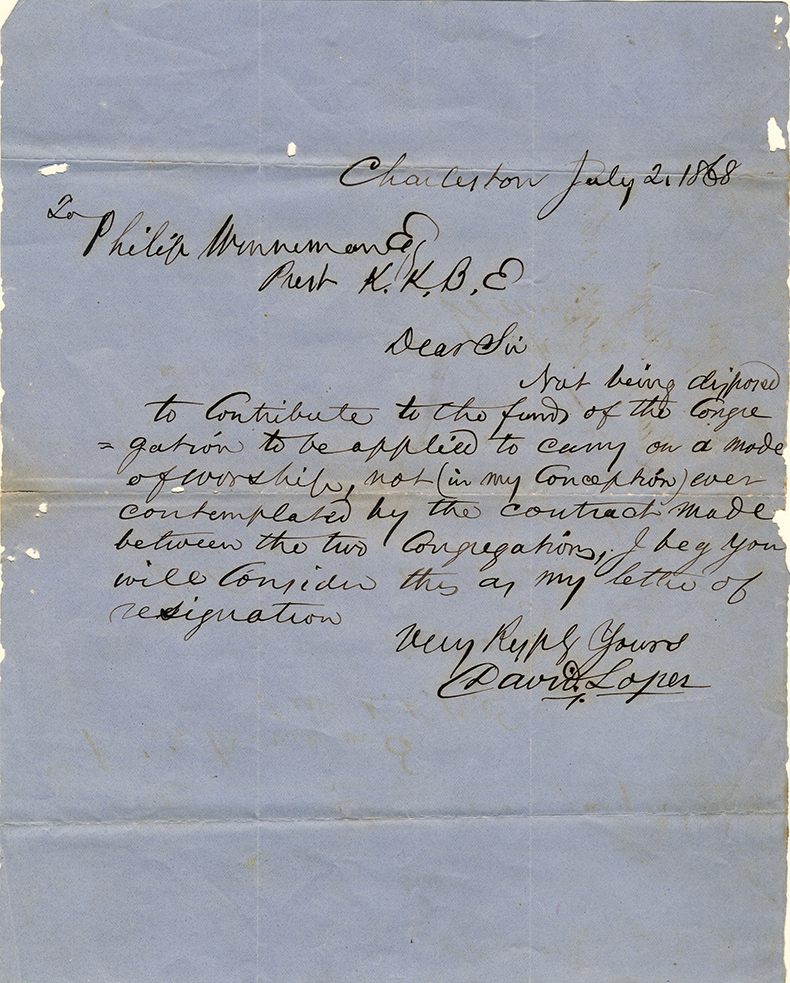 Charleston July 2. 1868
To
Philip Winneman Esq
Prest K. K. B. E
Dear Sir
Not being disposed
to Contribute to the funds of the Congre
= gation to be applied to carry on a mode
of worship, not (in my Conception) ever
contemplated by the contract made
between the two Congregations, I beg you
will Consider this as my letter of
resignation
Very Respfy Yours
David Lopez